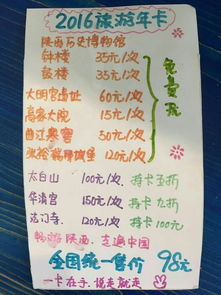 2016旅游年卡
陕西历史博物馆
钟楼 35元/次
鼓楼 35元/次
大明宫遗址 60元/次
高家大院 15元/次
曲江寒窑 50元/次
120元/次
免费玩
太白山 100元/次 持卡5折
华清宫 150元/次 持卡7折
法门寺 120元/次 持卡100元
畅游陕西 走遍中国
全国统一售价 98元
一卡在手 说走就走